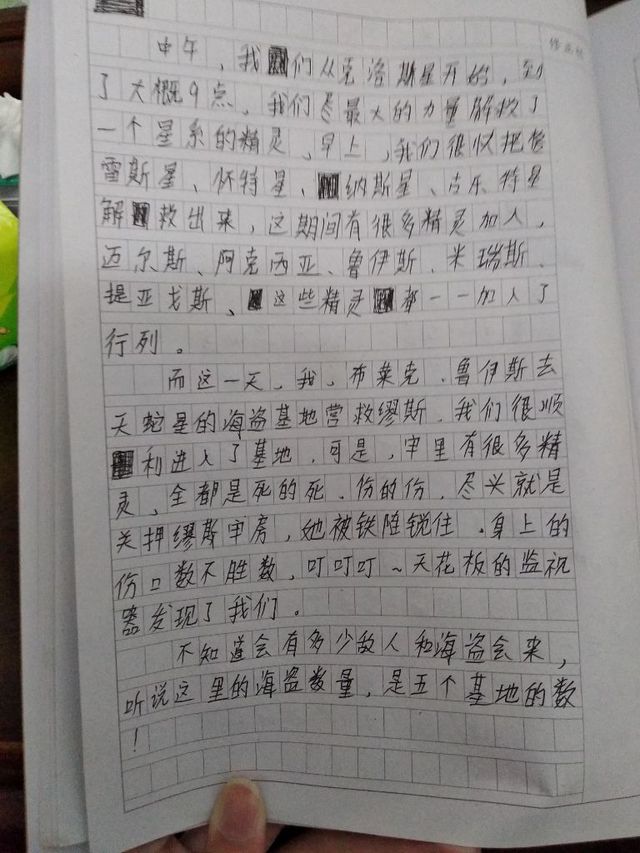 中午，我们从克洛斯星开始，到
了大概9点，我们尽最大的力量解救了
一个星系的精灵，早上，我们很快把卷
雷斯星、怀特星、纳斯星、古乐特星
解救出来，这期间有很多精灵加入，
迈尔斯、阿克西亚、鲁伊斯、米瑞斯、
提亚戈斯、这些精灵都一一加入了
行列。
而这一天，我、布莱克、鲁伊斯去
天蛇星的海盗基地营救缪斯，我们很顺
利进入了基地，可是，牢里有很多精
灵，全都是死的死、伤的伤，尽头就是
关押缪斯牢房，她被铁链锁住，身上的
伤口数不胜数，叮叮叮~天花板的监视
器发现了我们。
不知道会有多少敌人和海盗会来，
听说这里的海盗数量，是五个基地的数
！